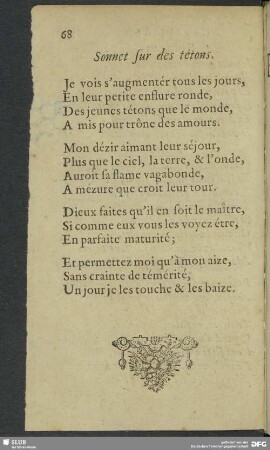 68
Sonnet ſur des tétons.
Je vois s'augmentér tous les jours,
En leur petite enflure ronde,
Des jeunes tétons que le monde,
A mis pour trône des amours.
Mon dézir aimant leur séjour,
Plus que le ciel, la terre, & l'onde,
Auroit ſa flame vagabonde,
A mézure que croit leur tour.
Dieux faites qu'il en ſoit le maître,
Si comme eux vous les voyez être,
En parfaite maturité;
Et permettez moi qu'à mon aize,
Sans crainte de témérité,
Un jour je les touche & les baize.
SLUB
DFG